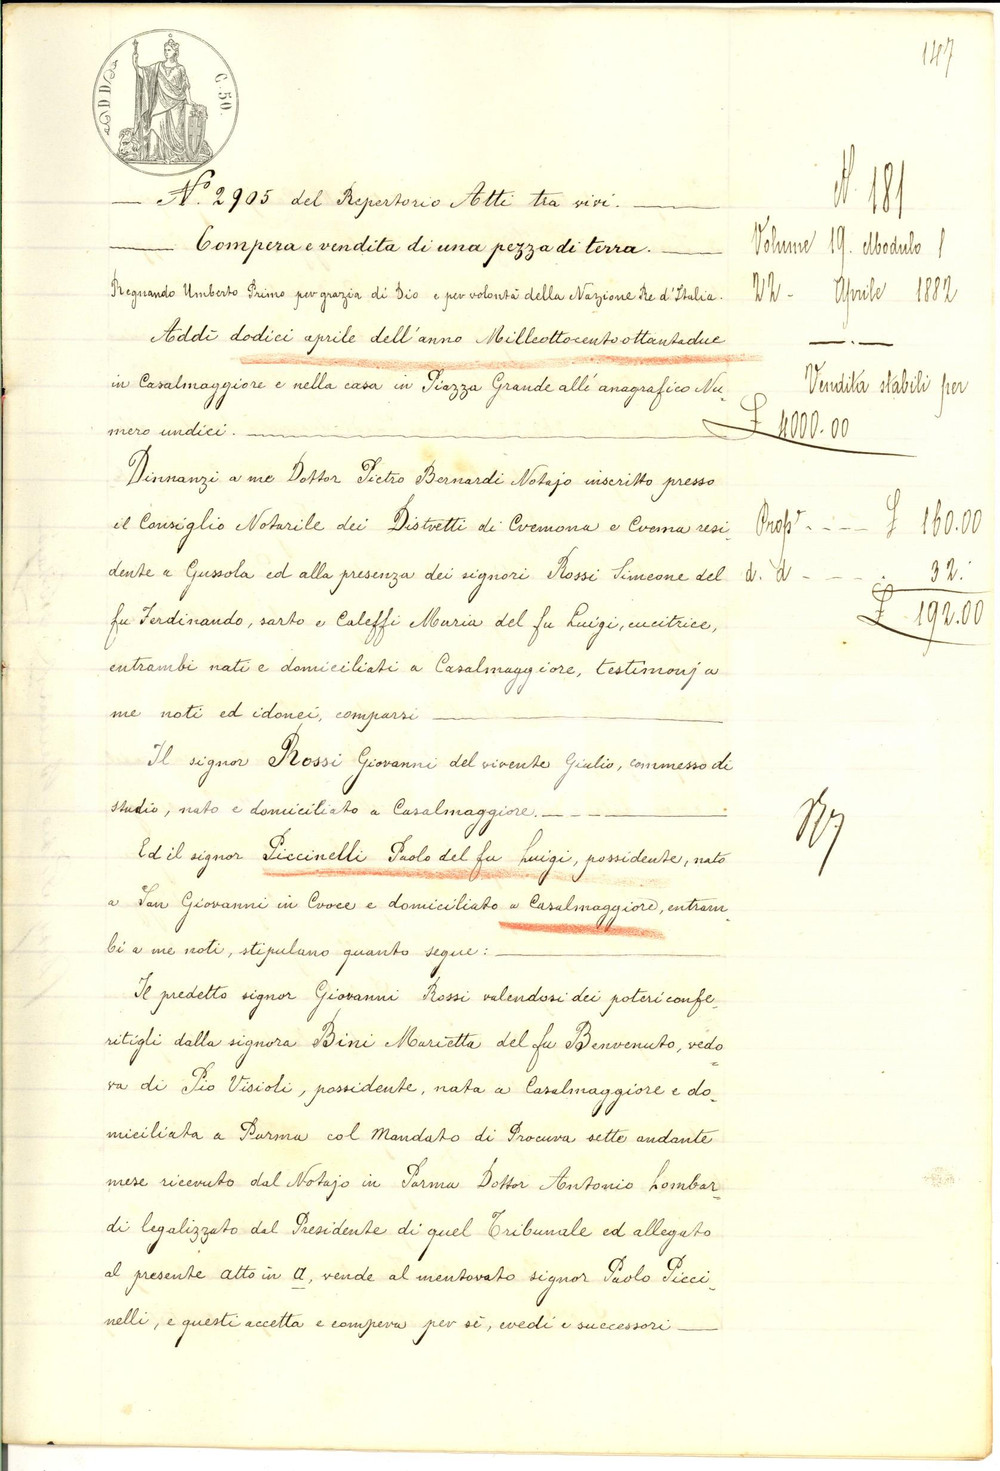 147
C. 50.
N.º 2905 del Repertorio Atti tra vivi.
Compera e vendita di una pezza di terra.
Regnando Umberto Primo per grazia di Dio e per volontà della Nazione Re d'Italia.
Addì dodici aprile dell'anno Milleottocentoottantadue
in Casalmaggiore e nella casa in Piazza Grande all'anagrafico Nu-
mero undici.
Dinnanzi a me Dottor Pietro Bernardi Notajo inscritto presso
il Consiglio Notarile dei Distretti di Cremona e Crema resi-
dente a Gussola ed alla presenza dei signori Rossi Simeone del
fu Ferdinando, sarto e Caleffi Maria del fu Luigi, cucitrice,
entrambi nati e domiciliati a Casalmaggiore, testimonj a
me noti ed idonei, comparsi
Il signor Rossi Giovanni del vivente Giulio, commesso di
studio, nato e domiciliato a Casalmaggiore.
Ed il signor Piccinelli Paolo del fu Luigi, possidente, nato
a San Giovanni in Croce e domiciliato a Casalmaggiore, entram-
bi a me noti, stipulano quanto segue:
Il predetto signor Giovanni Rossi valendosi dei poteri confe-
ritigli dalla signora Bini Marietta del fu Benvenuto, vedo-
va di Pio Visioli, possidente, nata a Casalmaggiore e do-
miciliata a Parma col Mandato di Procura sette andante
mese ricevuto dal Notajo in Parma Dottor Antonio Lombar-
di legalizzato dal Presidente di quel Tribunale ed allegato
al presente atto in a, vende al mentovato signor Paolo Picci-
nelli, e questi accetta e compera per sè, eredi e successori
N. 181
Volume 19. Modulo 1
22 - Aprile 1882
Vendita stabili per
£ 4000.00
Prop.le - - - - £ 160.00
d. d - - - - 32.
£ 192.00